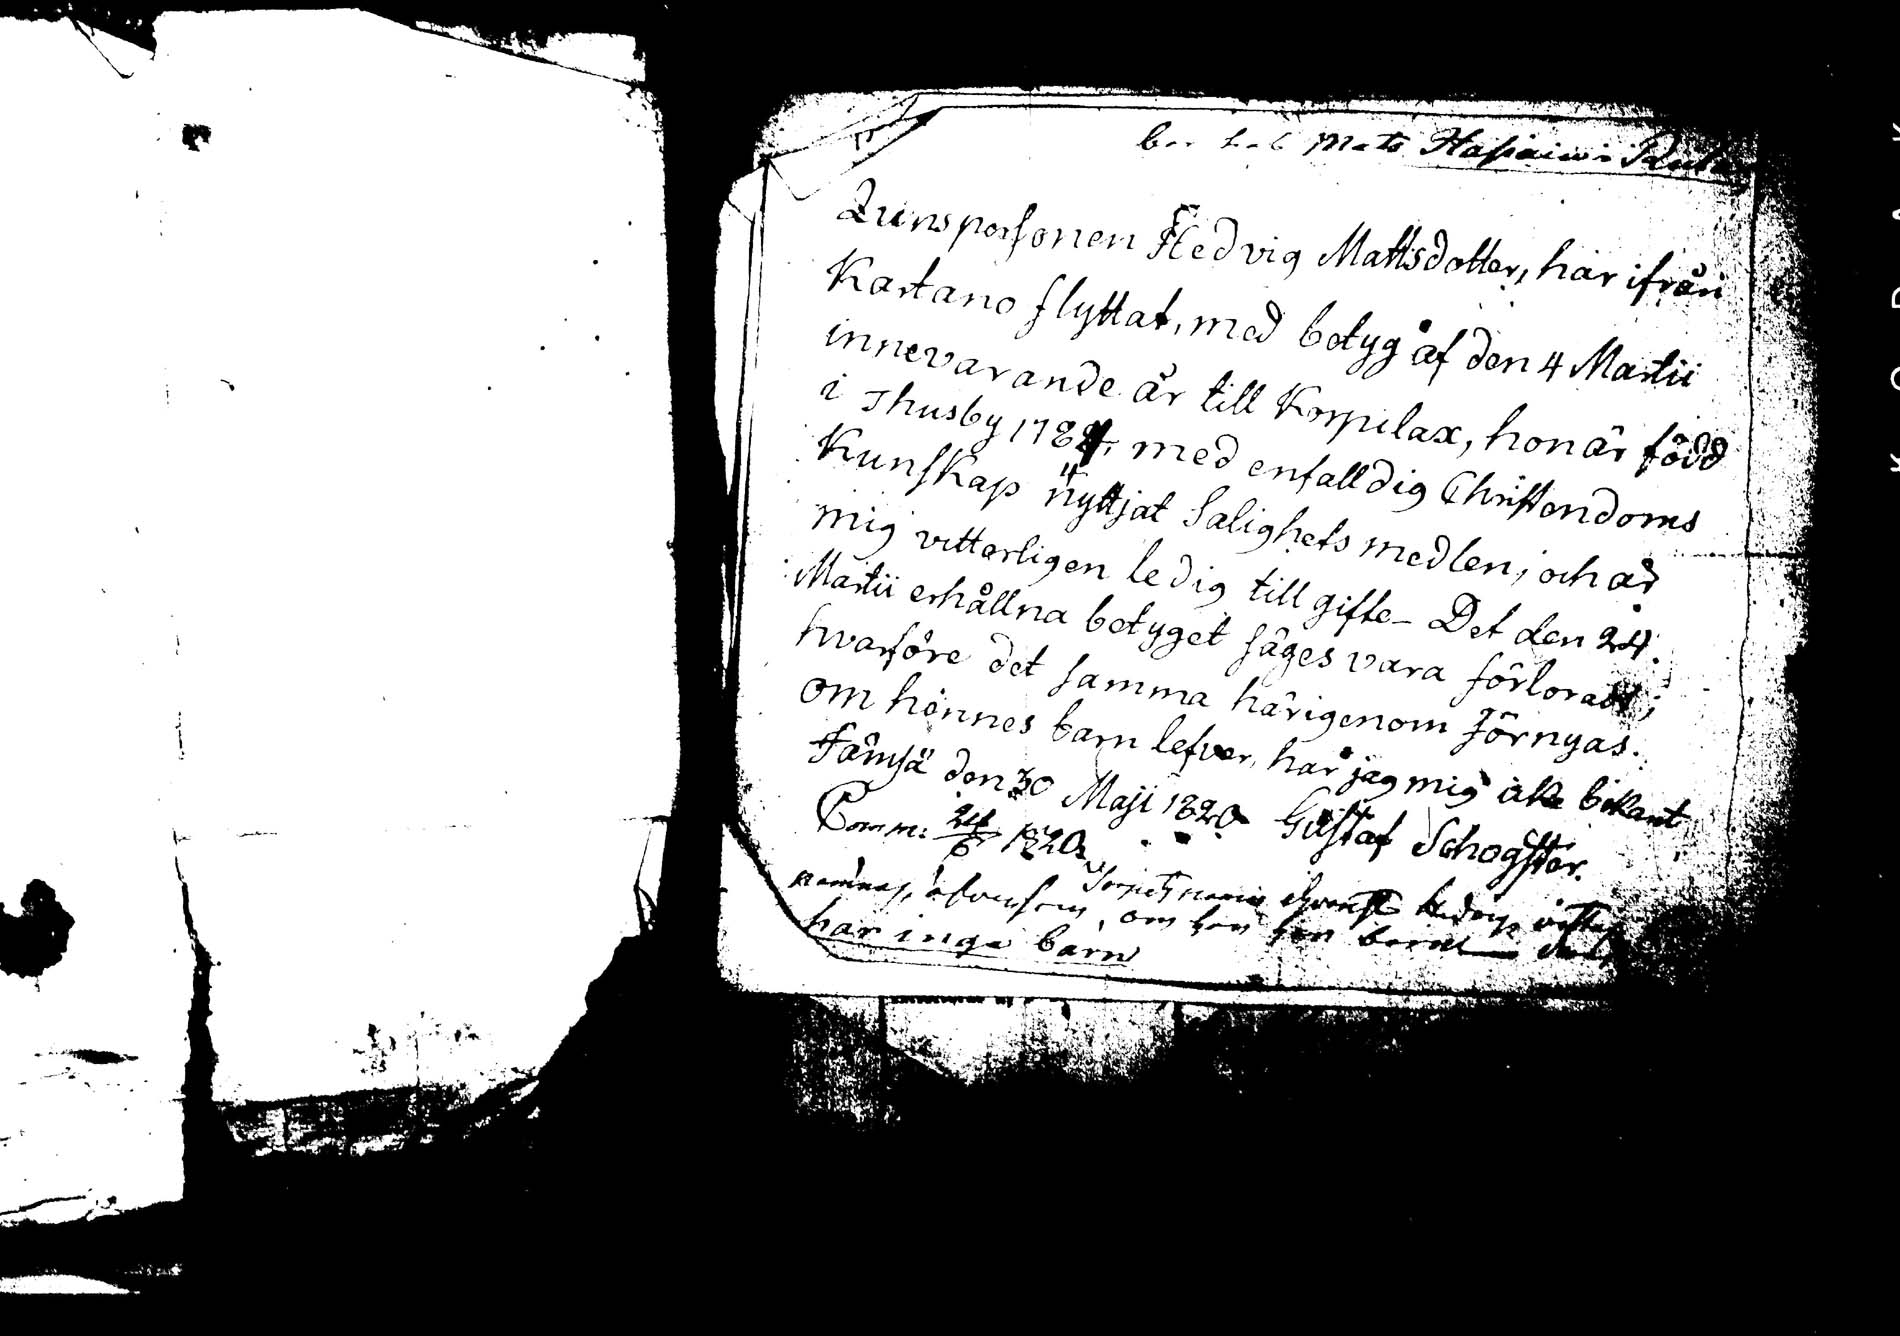 bor hos Mats Hapaiwi
Quinspersonen Hedvig Mattsdotter, har ifrån
Kartano flyttat, med betyg af den 4 Martii
innevarande år till Korpilax, hon är född
i Thusby 1784, med enfalldig Christendoms
Kunskap nyttjat Salighets medlen, och är
mig vitterligen ledig till gifte – Det den 24.
Martii erhållna betyget säges vara förloradt;
hvarföre det samma härigenom förnyas.
om hennes barn lefver, har jag mig icke bekant
Jämsä den 30 Maji 1820 Gustaf Schogster.
Comm: 24/6 1820.
om hon
har inga barn
KODAK